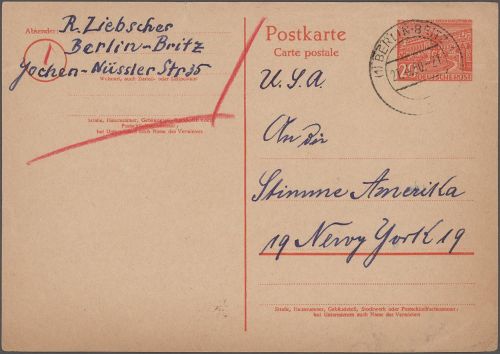 Absender: R. Liebscher
Berlin-Britz
1
Jochen-Nüssler Str 35
Wohnort, auch Zustell- oder Leitpostamt
Straße, Hausnummer, Gebäudeteil, Stockwerk oder
Postschließfachnummer;
bei Untermietern auch Name des Vermieters
Postkarte
Carte postale
(1) BERLIN-BRITZ
DEUTSCHE POST
U.S.A
An Die
Stimme Amerika
19 Newy York 19
Straße, Hausnummer, Gebäudeteil, Stockwerk oder Postschließfachnummer;
bei Untermietern auch Name des Vermieters